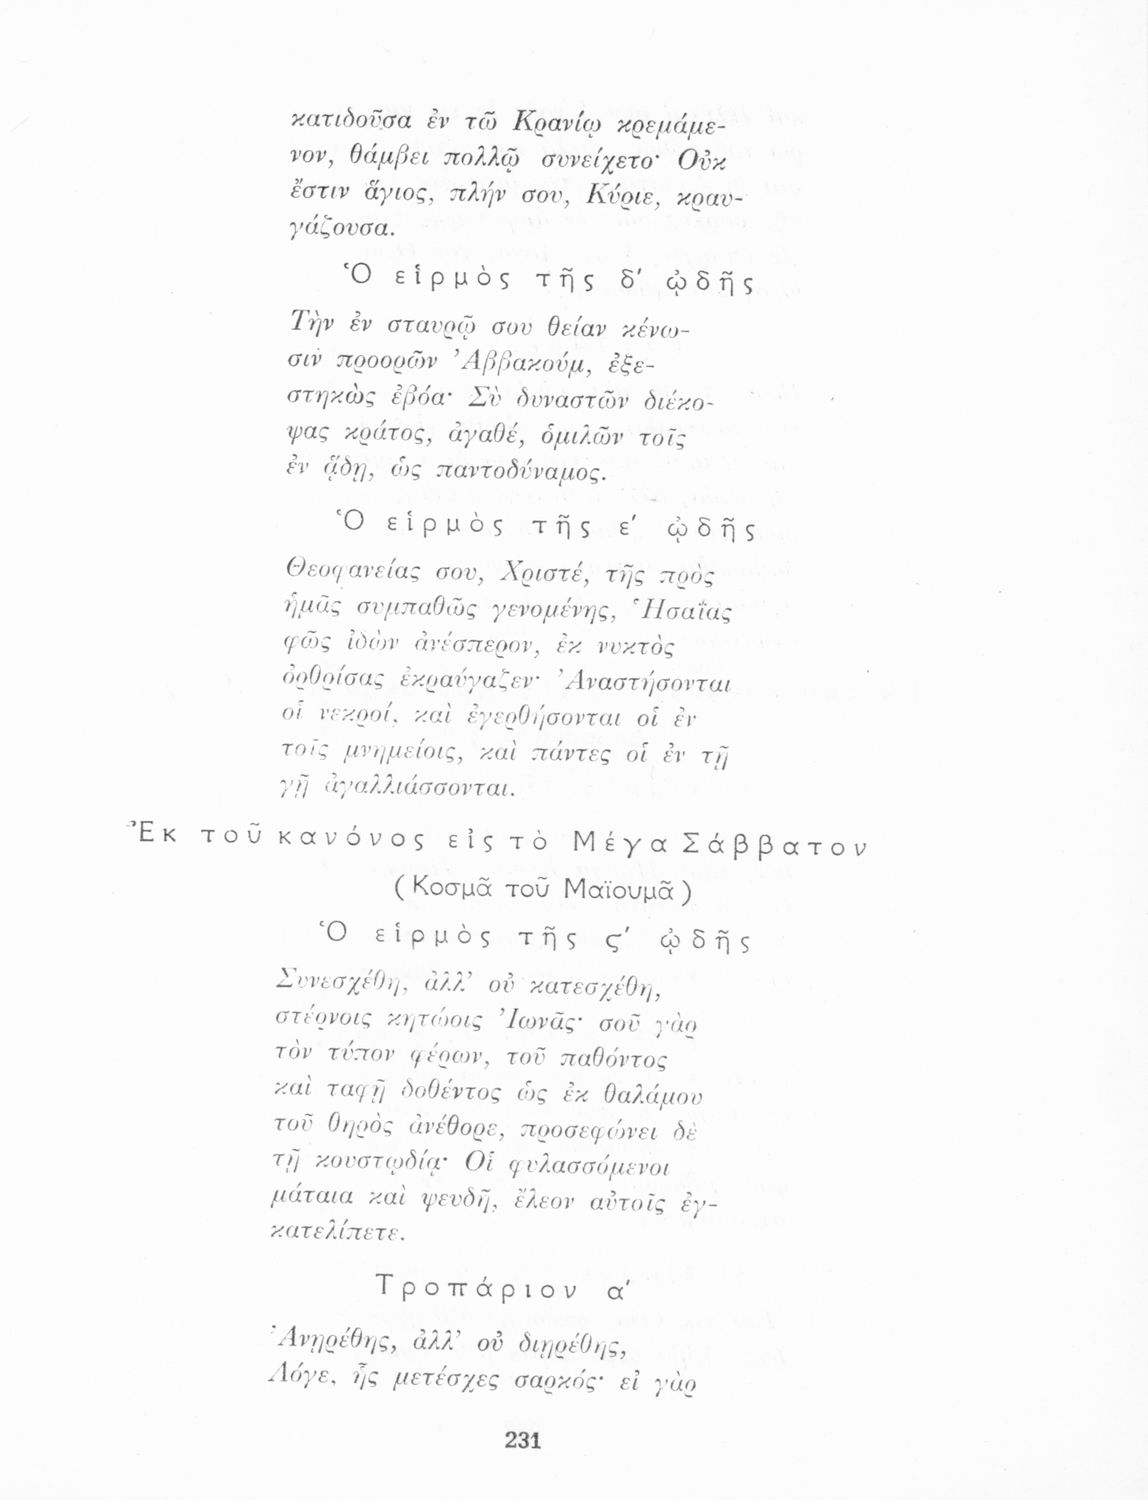 κατιδοῦσα ἐν τῶ Κρανίῳ κρεμάμε-
νον, θάμβει πολλῷ συνείχετο· Οὐκ
ἔστιν ἅγιος, πλήν σου, Κύριε, κραυ-
γάζουσα.
Ὁ εἱρμὸς τῆς δ′ ᾠδῆς
Τὴν ἐν σταυρῷ σου θείαν κένω-
σιν προορῶν Ἀββακούμ, ἐξε-
στηκὼς ἐβόα· Σὺ δυναστῶν διέκο-
ψας κράτος, ἀγαθέ, ὁμιλῶν τοῖς
ἐν ᾅδῃ, ὡς παντοδύναμος.
Ὁ εἱρμὸς τῆς ε′ ᾠδῆς
Θεοφανείας σου, Χριστέ, τῆς πρὸς
ἡμᾶς συμπαθῶς γενομένης, Ἡσαΐας
φῶς ἰδὼν ἀνέσπερον, ἐκ νυκτὸς
ὀρθρίσας ἐκραύγαζεν· Ἀναστήσονται
οἱ νεκροί, καὶ ἐγερθήσονται οἱ ἐν
τοῖς μνημείοις, καὶ πάντες οἱ ἐν τῇ
γῇ ἀγαλλιάσσονται.
Ἐκ τοῦ κανόνος εἰς τὸ Μέγα Σάββατον
(Κοσμᾶ τοῦ Μαϊουμᾶ)
Ὁ εἱρμὸς τῆς ς′ ᾠδῆς
Συνεσχέθη, ἀλλ’ οὐ κατεσχέθη,
στέρνοις κητώοις Ἰωνᾶς· σοῦ γὰρ
τὸν τύπον φέρων, τοῦ παθόντος
καὶ ταφῇ δοθέντος ὡς ἐκ θαλάμου
τοῦ θηρὸς ἀνέθορε, προσεφώνει δὲ
τῇ κουστωδίᾳ· Οἱ φυλασσόμενοι
μάταια καὶ ψευδῆ, ἔλεον αὐτοῖς ἐγ-
κατελίπετε.
Τροπάριον α′
Ἀνῃρέθης, ἀλλ’ οὐ διῃρέθης,
Λόγε, ἧς μετέσχες σαρκός· εἰ γὰρ
231